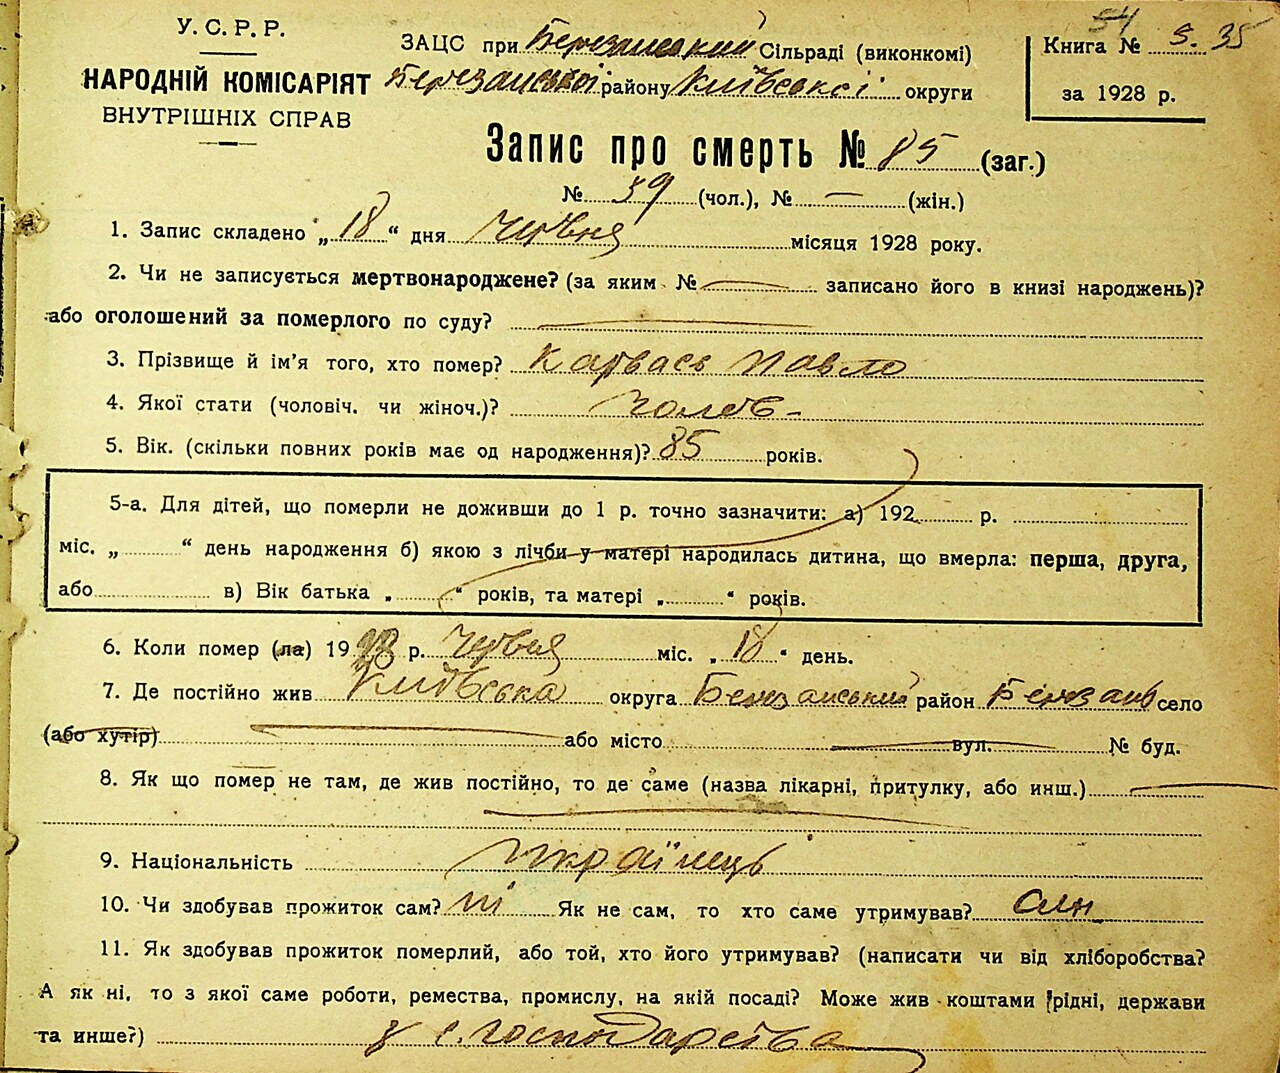 У. С. Р. Р.
НАРОДНІЙ КОМІСАРІЯТ
ВНУТРІШНІХ СПРАВ
ЗАЦС при Березанський Сільраді (виконкомі)
Березанської району Київської округи
54
Книга № 5. 35
за 1928 р.
Запис про смерть № 85 (заг.)
№ 39 (чол.), № — (жін.)
1. Запис складено „18“ дня Червня місяця 1928 року.
2. Чи не записується мертвонароджене? (за яким № — записано його в книзі народжень)?
або оголошений за померлого по суду? —
3. Прізвище й ім'я того, хто помер? Карвась Павло
4. Якої стати (чоловіч. чи жіноч.)? Чолов-
5. Вік. (скільки повних років має од народження)? 85 років.
5-а. Для дітей, що померли не доживши до 1 р. точно зазначити: а) 192 р.
міс. „ “ день народження б) якою з лічби у матері народилась дитина, що вмерла: перша, друга,
або в) Вік батька „ “ років, та матері „ “ років.
6. Коли помер (ла) 1928 р. Червня міс. „18“ день.
7. Де постійно жив Київська округа Березанський район Березань село
(або хутір) — або місто — вул. № буд.
8. Як що помер не там, де жив постійно, то де саме (назва лікарні, притулку, або инш.) —
9. Національність Українець
10. Чи здобував прожиток сам? ні Як не сам, то хто саме утримував? Син
11. Як здобував прожиток померлий, або той, хто його утримував? (написати чи від хліборобства?
А як ні, то з якої саме роботи, ремества, промислу, на якій посаді? Може жив коштами рідні, держави
та инше?) з с. господарства